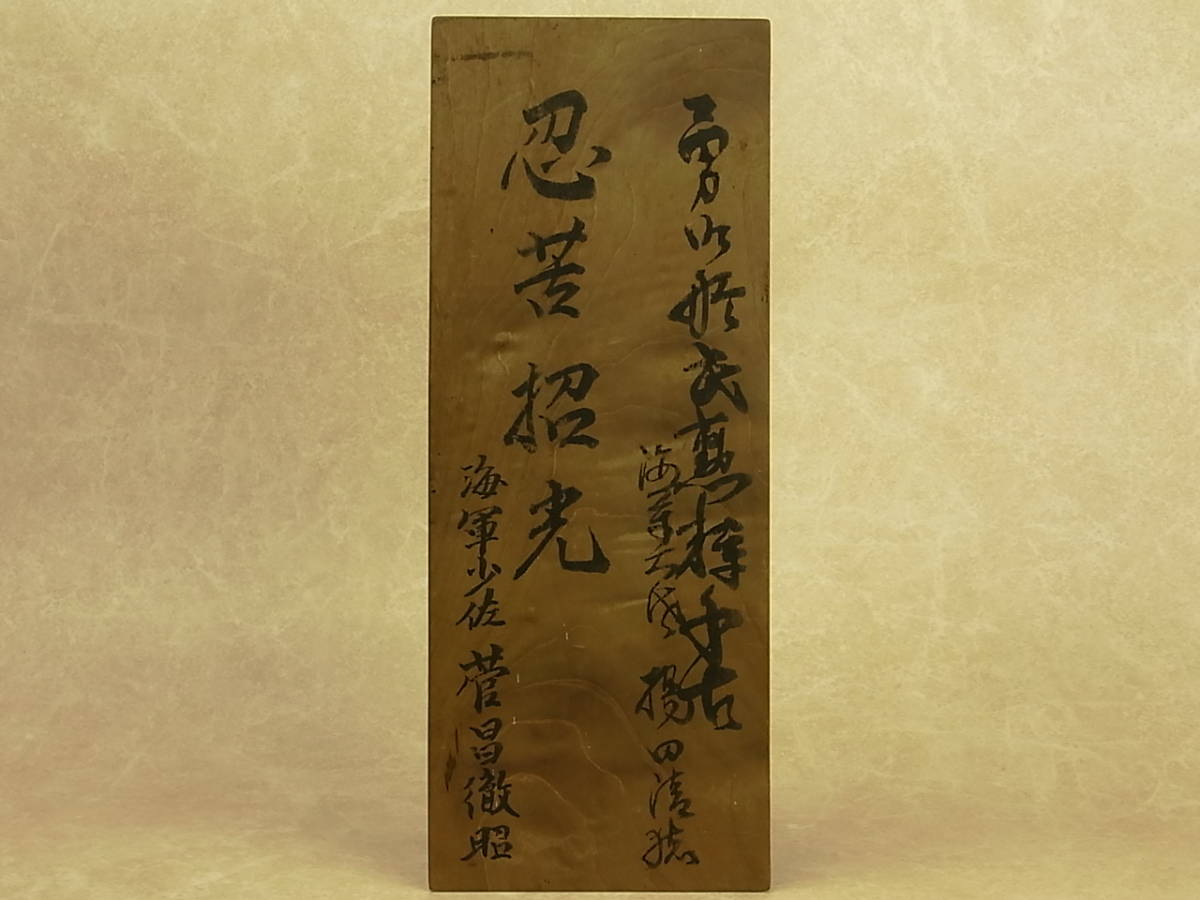 勇武勲千古
海軍大佐 揚田清猪
忍苦招光
海軍少佐 菅昌徹昭